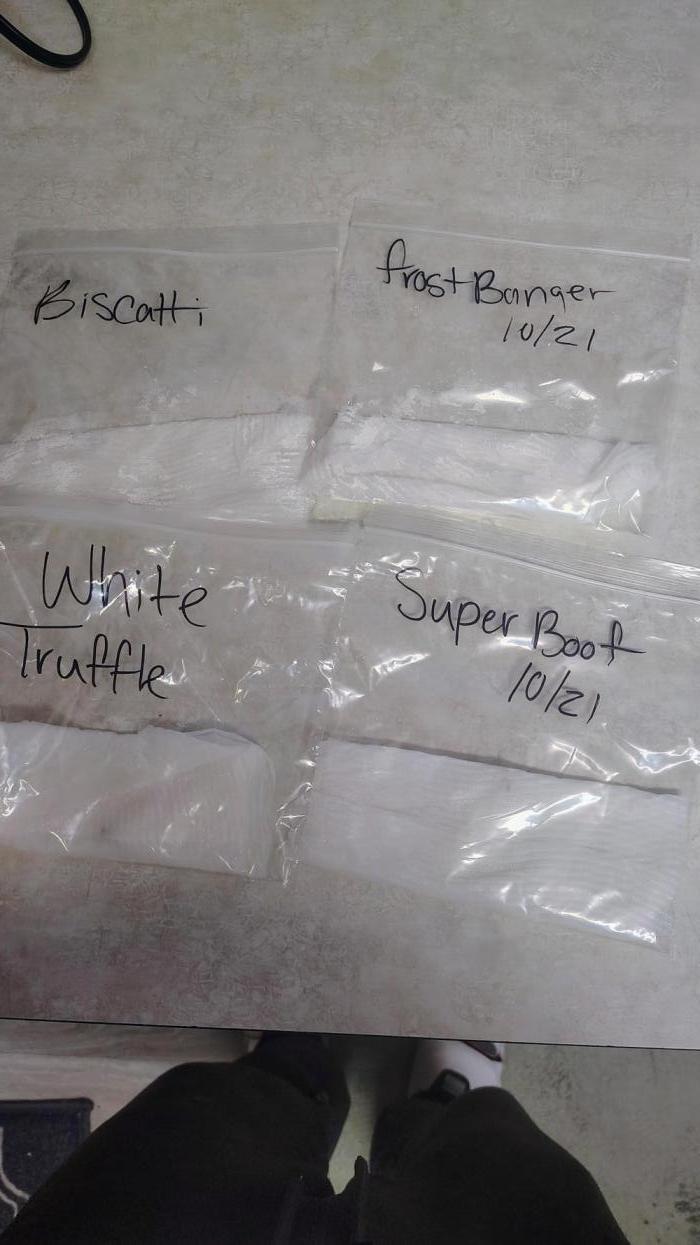 Biscatti
frost Banger
10/21
White
Truffle
Super Boof
10/21